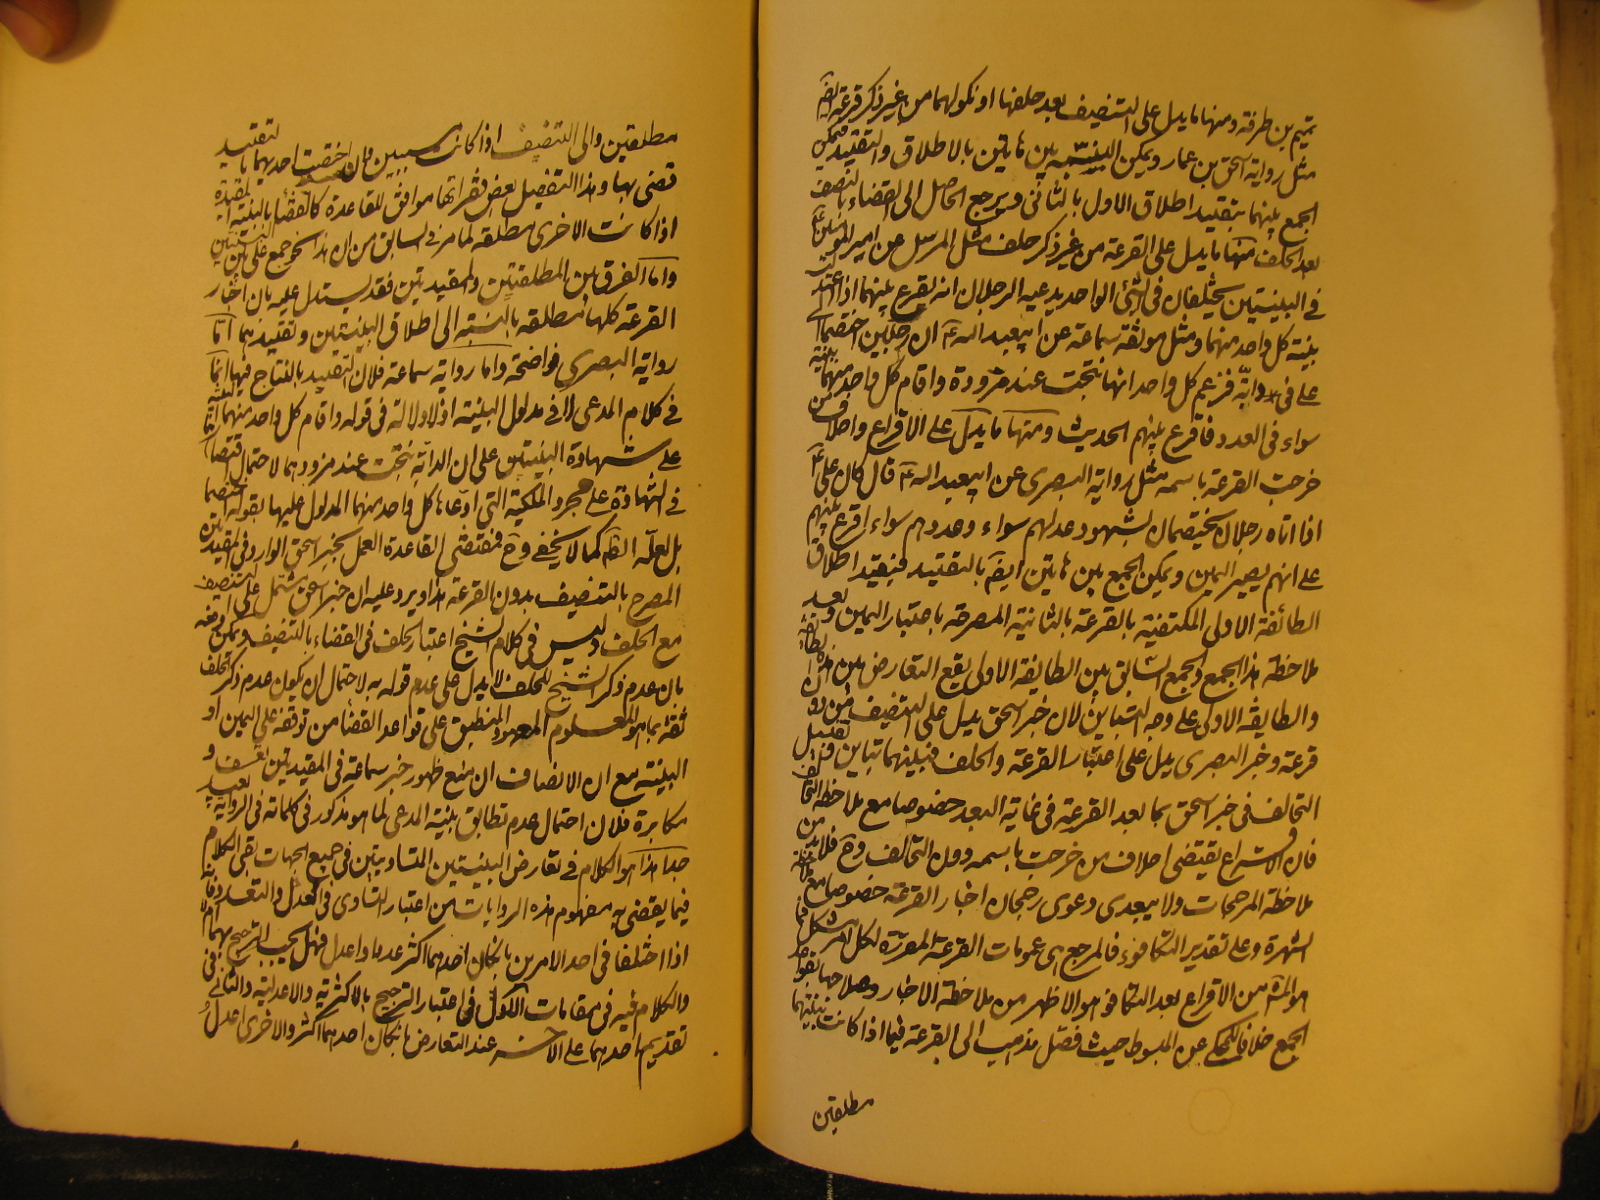 تميم بن طرفة ومنها ما يدل على التنصيف بعد حلفها او نكولهما من غير ذكر قرعة ايضا
مثل رواية اسحق بن عمار ويمكن بين هاتين بالاطلاق والتقييد فيمكن
الجمع بينهما بتقييد اطلاق الاول بالثاني ويرجع الحاصل الى القضاء بالتنصيف
بعد الحلف ومنها ما يدل على القرعة من غير ذكر حلف مثل المرسل عن امير المؤمنين ع
في البينتين يختلفان في الشئ الواحد يدعيه الرجلان انه يقرع بينهما اذا
بينة كل واحد منهما ومثل موثقة سماعة عن ابيعبد اله ع ان رجلين اختصما الى
على في دابة فزعم كل واحد انها نتجت عند مزودة واقام كل واحد منهما بينة
سواء في العدد فاقرع بينهم الحديث ومنها ما يدل على الاقراع واحلاف من
خرجت القرعة باسمه مثل رواية البصرى عن ابيعبد اله ع قال كان على ع
اذا اتاه رجلان يختصمان لشهود عدلهم سواء وعددهم سواء اقرع بينهم
على انهم يصير اليمين ويمكن الجمع بين هاتين ايضا بالتقييد فيقيد اطلاق
الطائفة الاولى المكتفية بالقرعة بالثانية المصرحة باعتبار اليمين وبعد
ملاحظة هذا الجمع والجمع السابق بين الطايفة الاولى يقع التعارض بين هذه
والطايفة الاولى على وجه التباين لان خبر اسحق يدل على التنصيف من دون
قرعة وخبر البصرى يدل على اعتبار القرعة والحلف فبينهما تباين
التحالف في خبر اسحق بما بعد القرعة في غاية البعد خصوصا مع ملاحظة
فان الاقتراع يقتضى احلاف من خرجت باسمه دون التحالف وح فلا بد من
ملاحظة المرجحات ولا يبعد دعوى رجحان اخبار القرعة خصوصا مع ملاحظة
الشهرة وعلى تقدير التكافوء فالمرجع هى عمومات القرعة المقررة لكل امر مشكل فما
هو المآ من الاقراع بعد التكافؤ هو الاظهر من ملاحظة الاخبار وملاحظة
الجمع خلافا للمحكي عن المبسوط حيث فصل فذهب الى القرعة فيما اذا كانت بينتهما
مطلقتين
مطلقتين والى التنصيف اذا كانت مسببين فان اختصت احديهما بالتقييد
قضى بها وهذا التفصيل بعض فقراتها موافق للقاعدة كالقضاء بالبينة المقيدة
اذا كانت الاخرى مطلقة لما مر في السابق من ان هذا نحو جمع على بين البينتين
واما الفرق بين المطلقتين والمقيدتين فقد يستدل عليه بان اخبار
القرعة كلها مطلقه بالنسبة الى اطلاق البينتين وتقييدهما اما
رواية البصرى فواضحة واما رواية سماعة فلان التقييد بالنتاج فيها انما
في كلام المدعى لا في مدلول البينة اذ لا دلالة في قوله واقام كل واحد منهما البينة
على شهادة البينتين على ان الدابة نتجت عند مزودهما لاحتمال
في الشهادة على مجرد الملكية التي ادعاها كل واحد منهما المدلول عليها بقوله اختصما
بل لعله الظ كما لا يخفى وح فمقتضى القاعدة العمل بخبر اسحق الوارد في المقيدتين
المصرح بالتنصيف بدون القرعة هذا ويرد عليه ان خبر اسحق مشتمل على التنصيف
مع الحلف وليس في كلام الشيخ اعتبار الحلف في القضاء بالتنصيف ويمكن دفعه
بان عدم ذكر الشيخ للحلف لا يدل على عدم قوله به لاحتمال ان يكون عدم ذكر الحلف
ثقة بما هو المعلوم المعهود المنطبق على قواعد القضاء من توقفه على اليمين او
البينة مع ان الانصاف ان منع ظهور خبر سماعة في المقيدتين تعسف و
مكابرة فلان احتمال عدم تطابق بينة المدعى لما هو مذكور في كلماته في الرواية بعيد
جدا هذا هو الكلام في تعارض البينتين المتساويتين في جميع الجهات بقى الكلام
فيما يقتضى به مفهوم هذه الروايات من اعتبار التساوى في العدل والتعدد فانه
اذا اختلفا في احد الامرين بان كان احدهما اكثر عددا واعدل فهل يجب الترجيح بهما ام لا
والكلام فيه في مقامات الاول في اعتبار الترجيح بالاكثرية والاعدلية والثاني في
تقديم احدهما على الاخر عند التعارض بان كان احدهما اكثر والاخرى اعدل